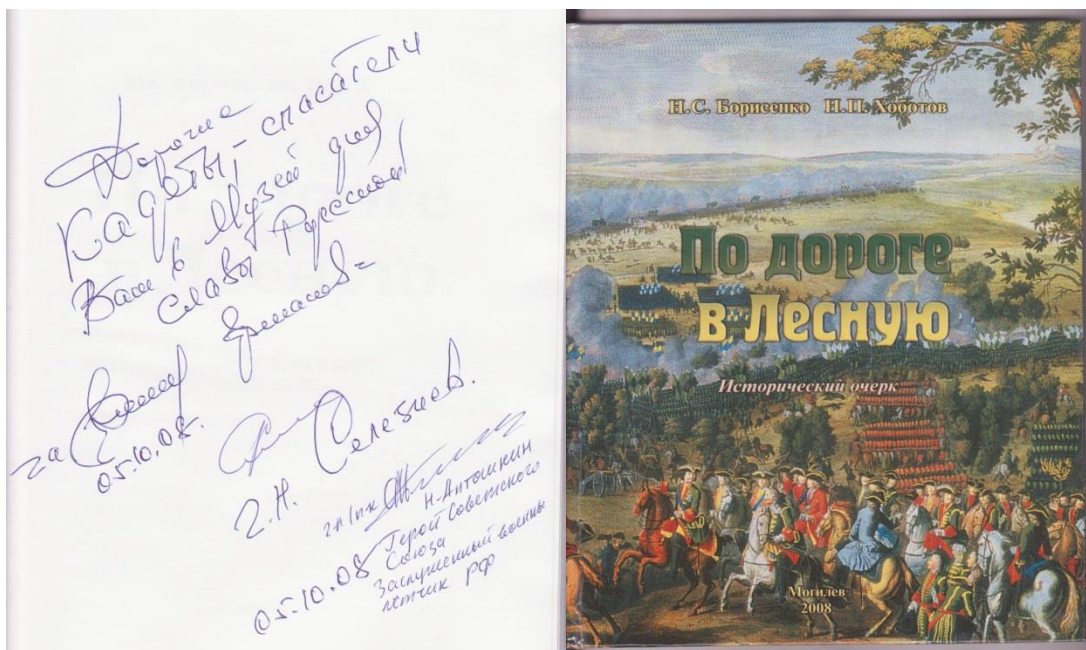 Дорогие
Кадеты,- спасатели
Вам в Музей для
Славы Русской
за
05.10.08.
Г.Н. Селезнев.
ген/плк
Н. Антошкин
05.10.08 Герой Советского
Союза
Заслуженный военный
летчик РФ
Н.С. Борисенко Н.П. Хоботов
По дороге
в Лесную
Исторический очерк
Могилев
2008